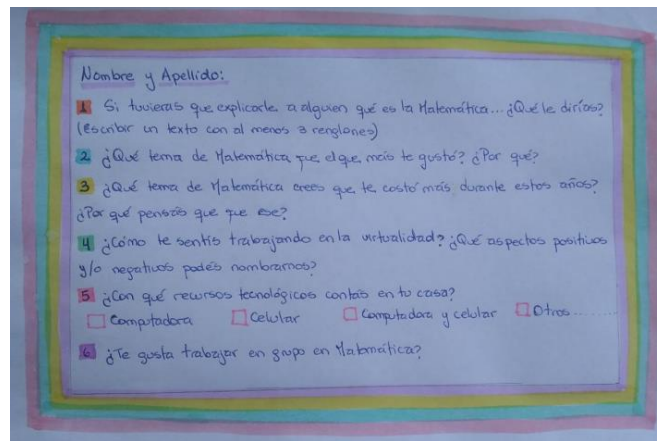 Nombre y Apellido:
1 Si tuvieras que explicarle a alguien qué es la Matemática... ¿Qué le dirías?
(Escribir un texto con al menos 3 renglones)
2 ¿Qué tema de Matemática fue el que más te gustó? ¿Por qué?
3 ¿Qué tema de Matemática crees que te costó más durante estos años?
¿Por qué pensás que fue ese?
4 ¿Cómo te sentís trabajando en la virtualidad? ¿Qué aspectos positivos
y/o negativos podés nombrarnos?
5 ¿Con qué recursos tecnológicos contás en tu casa?
Computadora Celular Computadora y celular Otros..........
6 ¿Te gusta trabajar en grupo en Matemática?